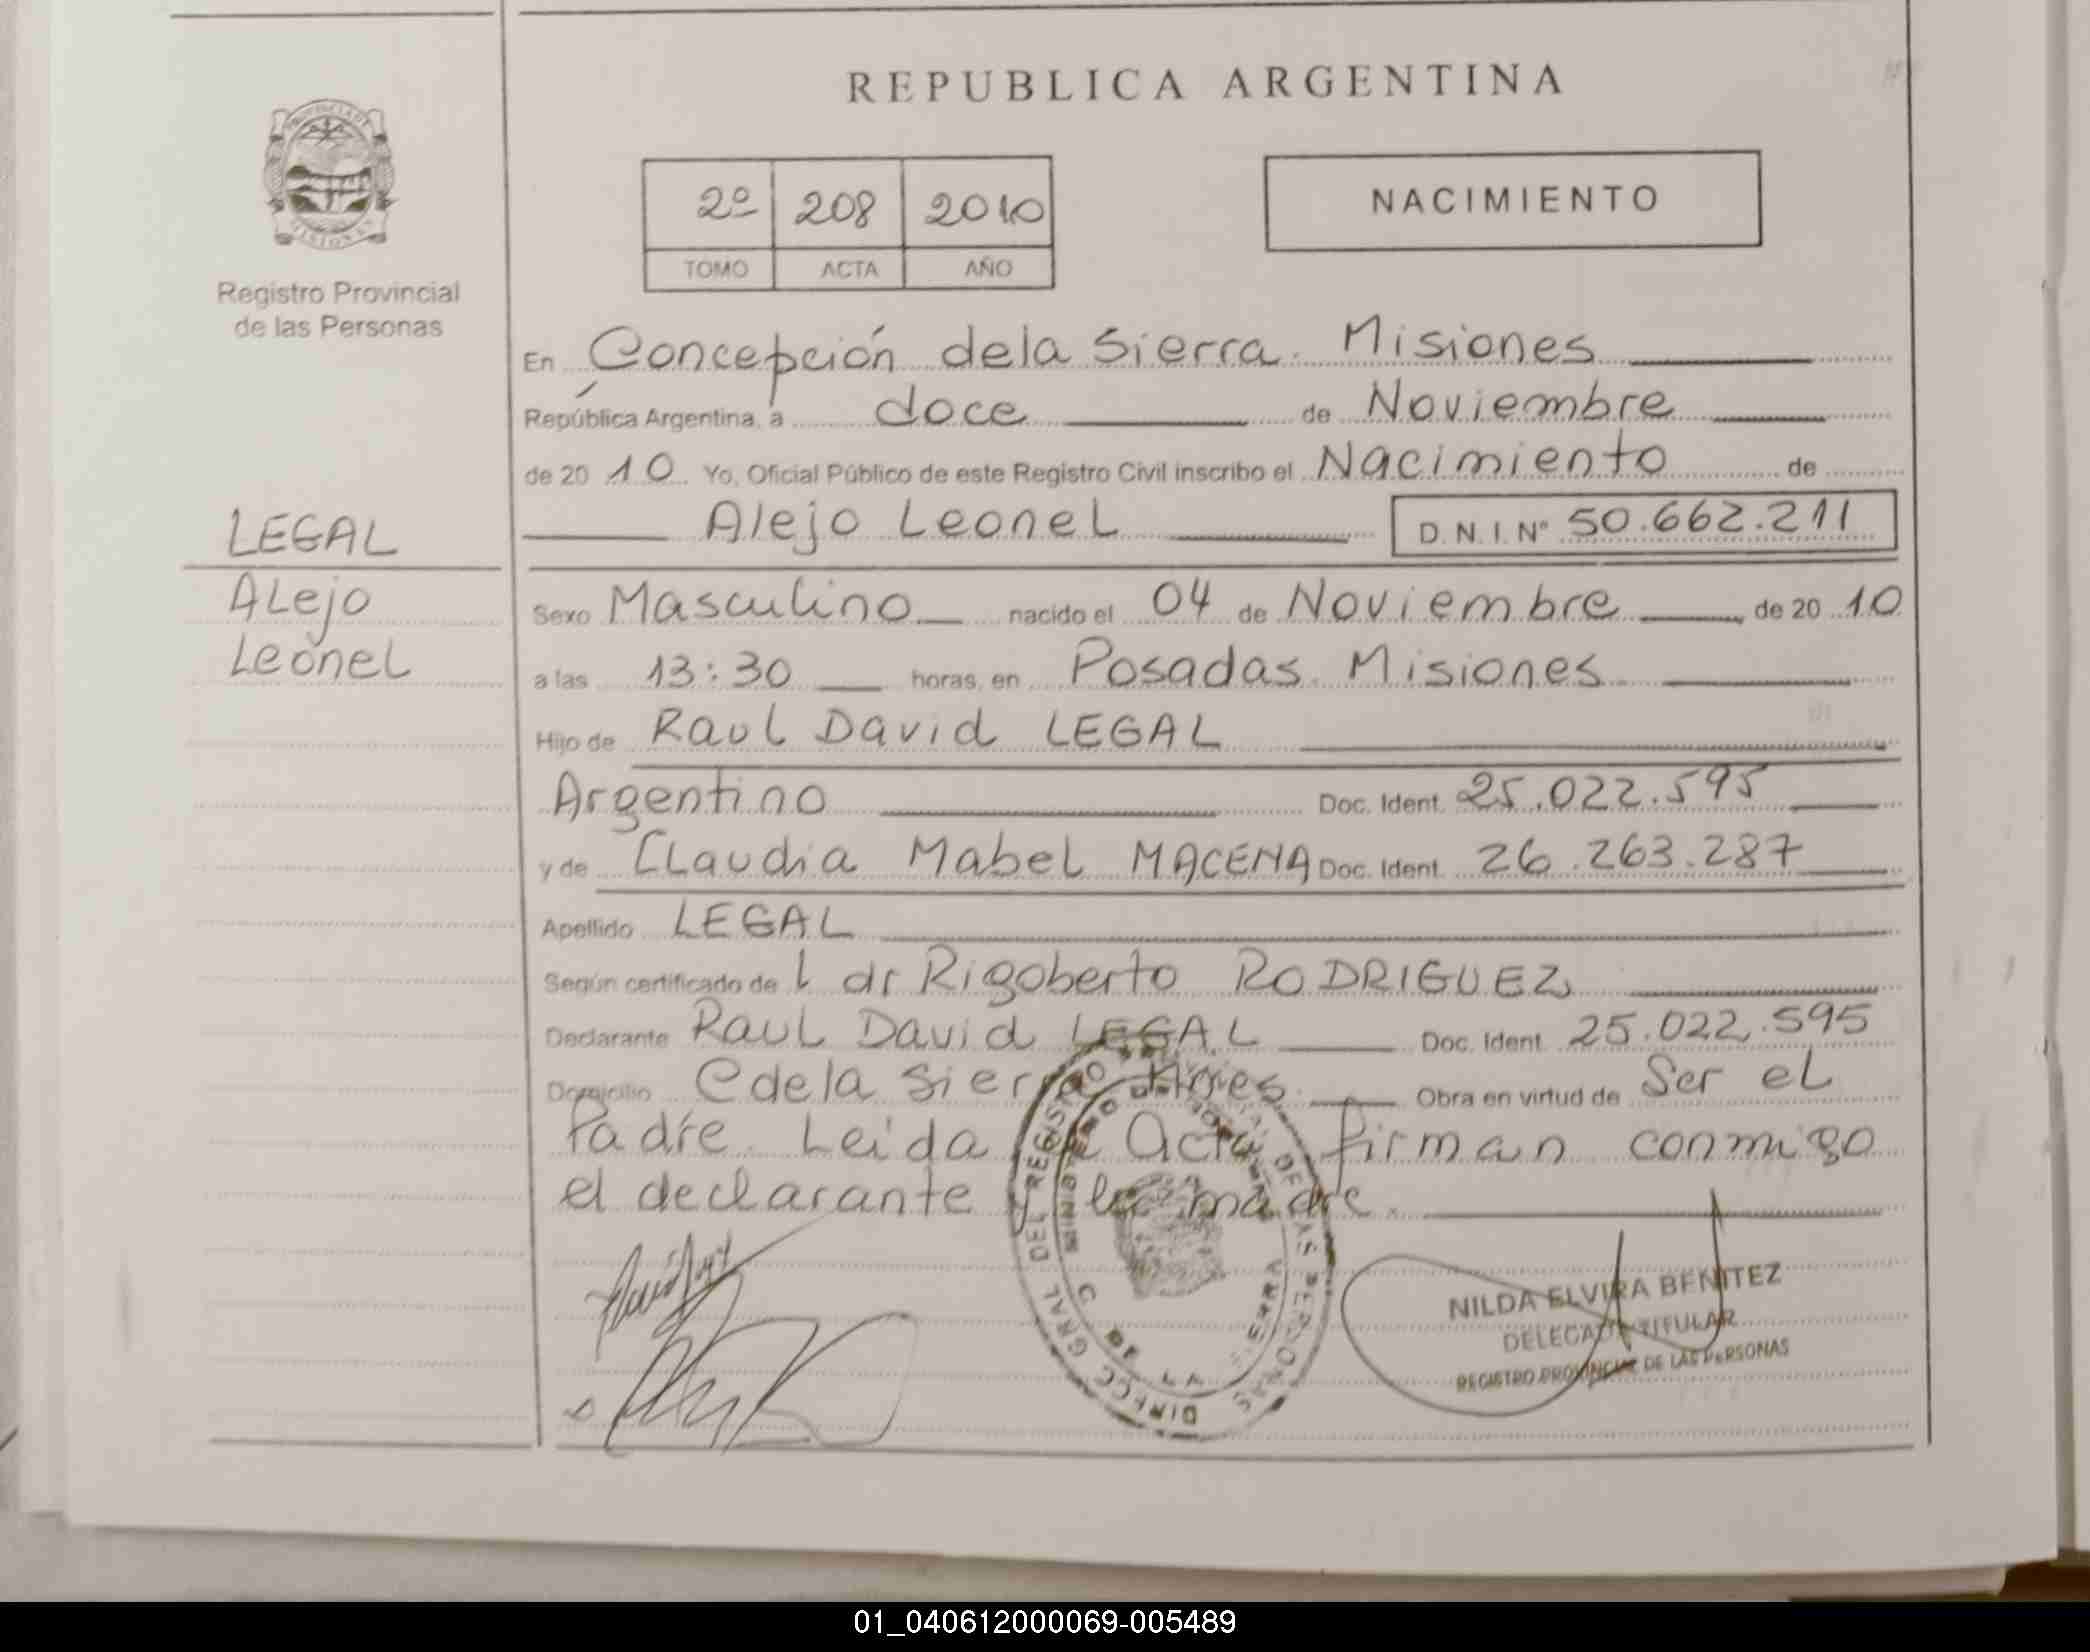 REPUBLICA ARGENTINA
PROVINCIA DE MISIONES
Registro Provincial
de las Personas
2º 208 2010
TOMO ACTA AÑO
NACIMIENTO
En Concepción dela Sierra. Misiones
República Argentina, a doce de Noviembre
de 2010. Yo, Oficial Público de este Registro Civil inscribo el Nacimiento de
Alejo Leonel D.N.I. Nº 50.662.211
LEGAL
Alejo
Leonel
Sexo Masculino nacido el 04 de Noviembre de 2010
a las 13:30 horas, en Posadas. Misiones
Hijo de Raul David LEGAL
Argentino Doc. Ident. 25.022.595
y de Claudia Mabel MACENA Doc. Ident. 26.263.287
Apellido LEGAL
Según certificado de l dr Rigoberto RODRIGUEZ
Declarante Raul David LEGAL Doc. Ident. 25.022.595
Domicilio C dela Sierra Mnes. Obra en virtud de Ser el
Padre. Leida el Acta firman conmigo
el declarante y la madre.
DIRECC GRAL DEL REGISTRO DE LAS PERSONAS
NILDA ELVIRA BENITEZ
DELEGADA TITULAR
REGISTRO PROVINCIAL DE LAS PERSONAS
01_040612000069-005489